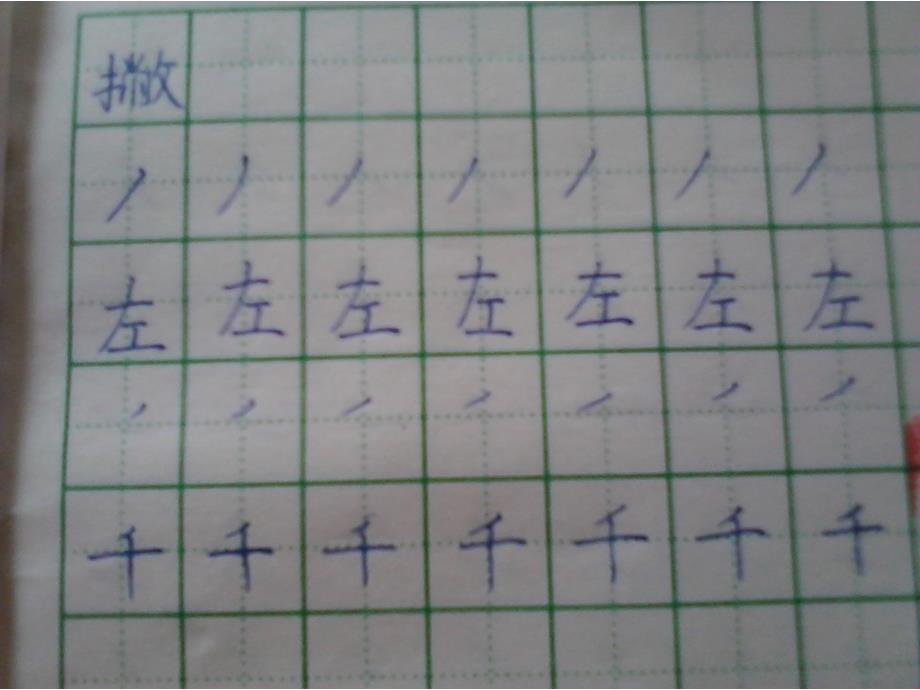 撇
丿丿丿丿丿丿丿
左左左左左左左
丿丿丿丿丿丿丿
千千千千千千千